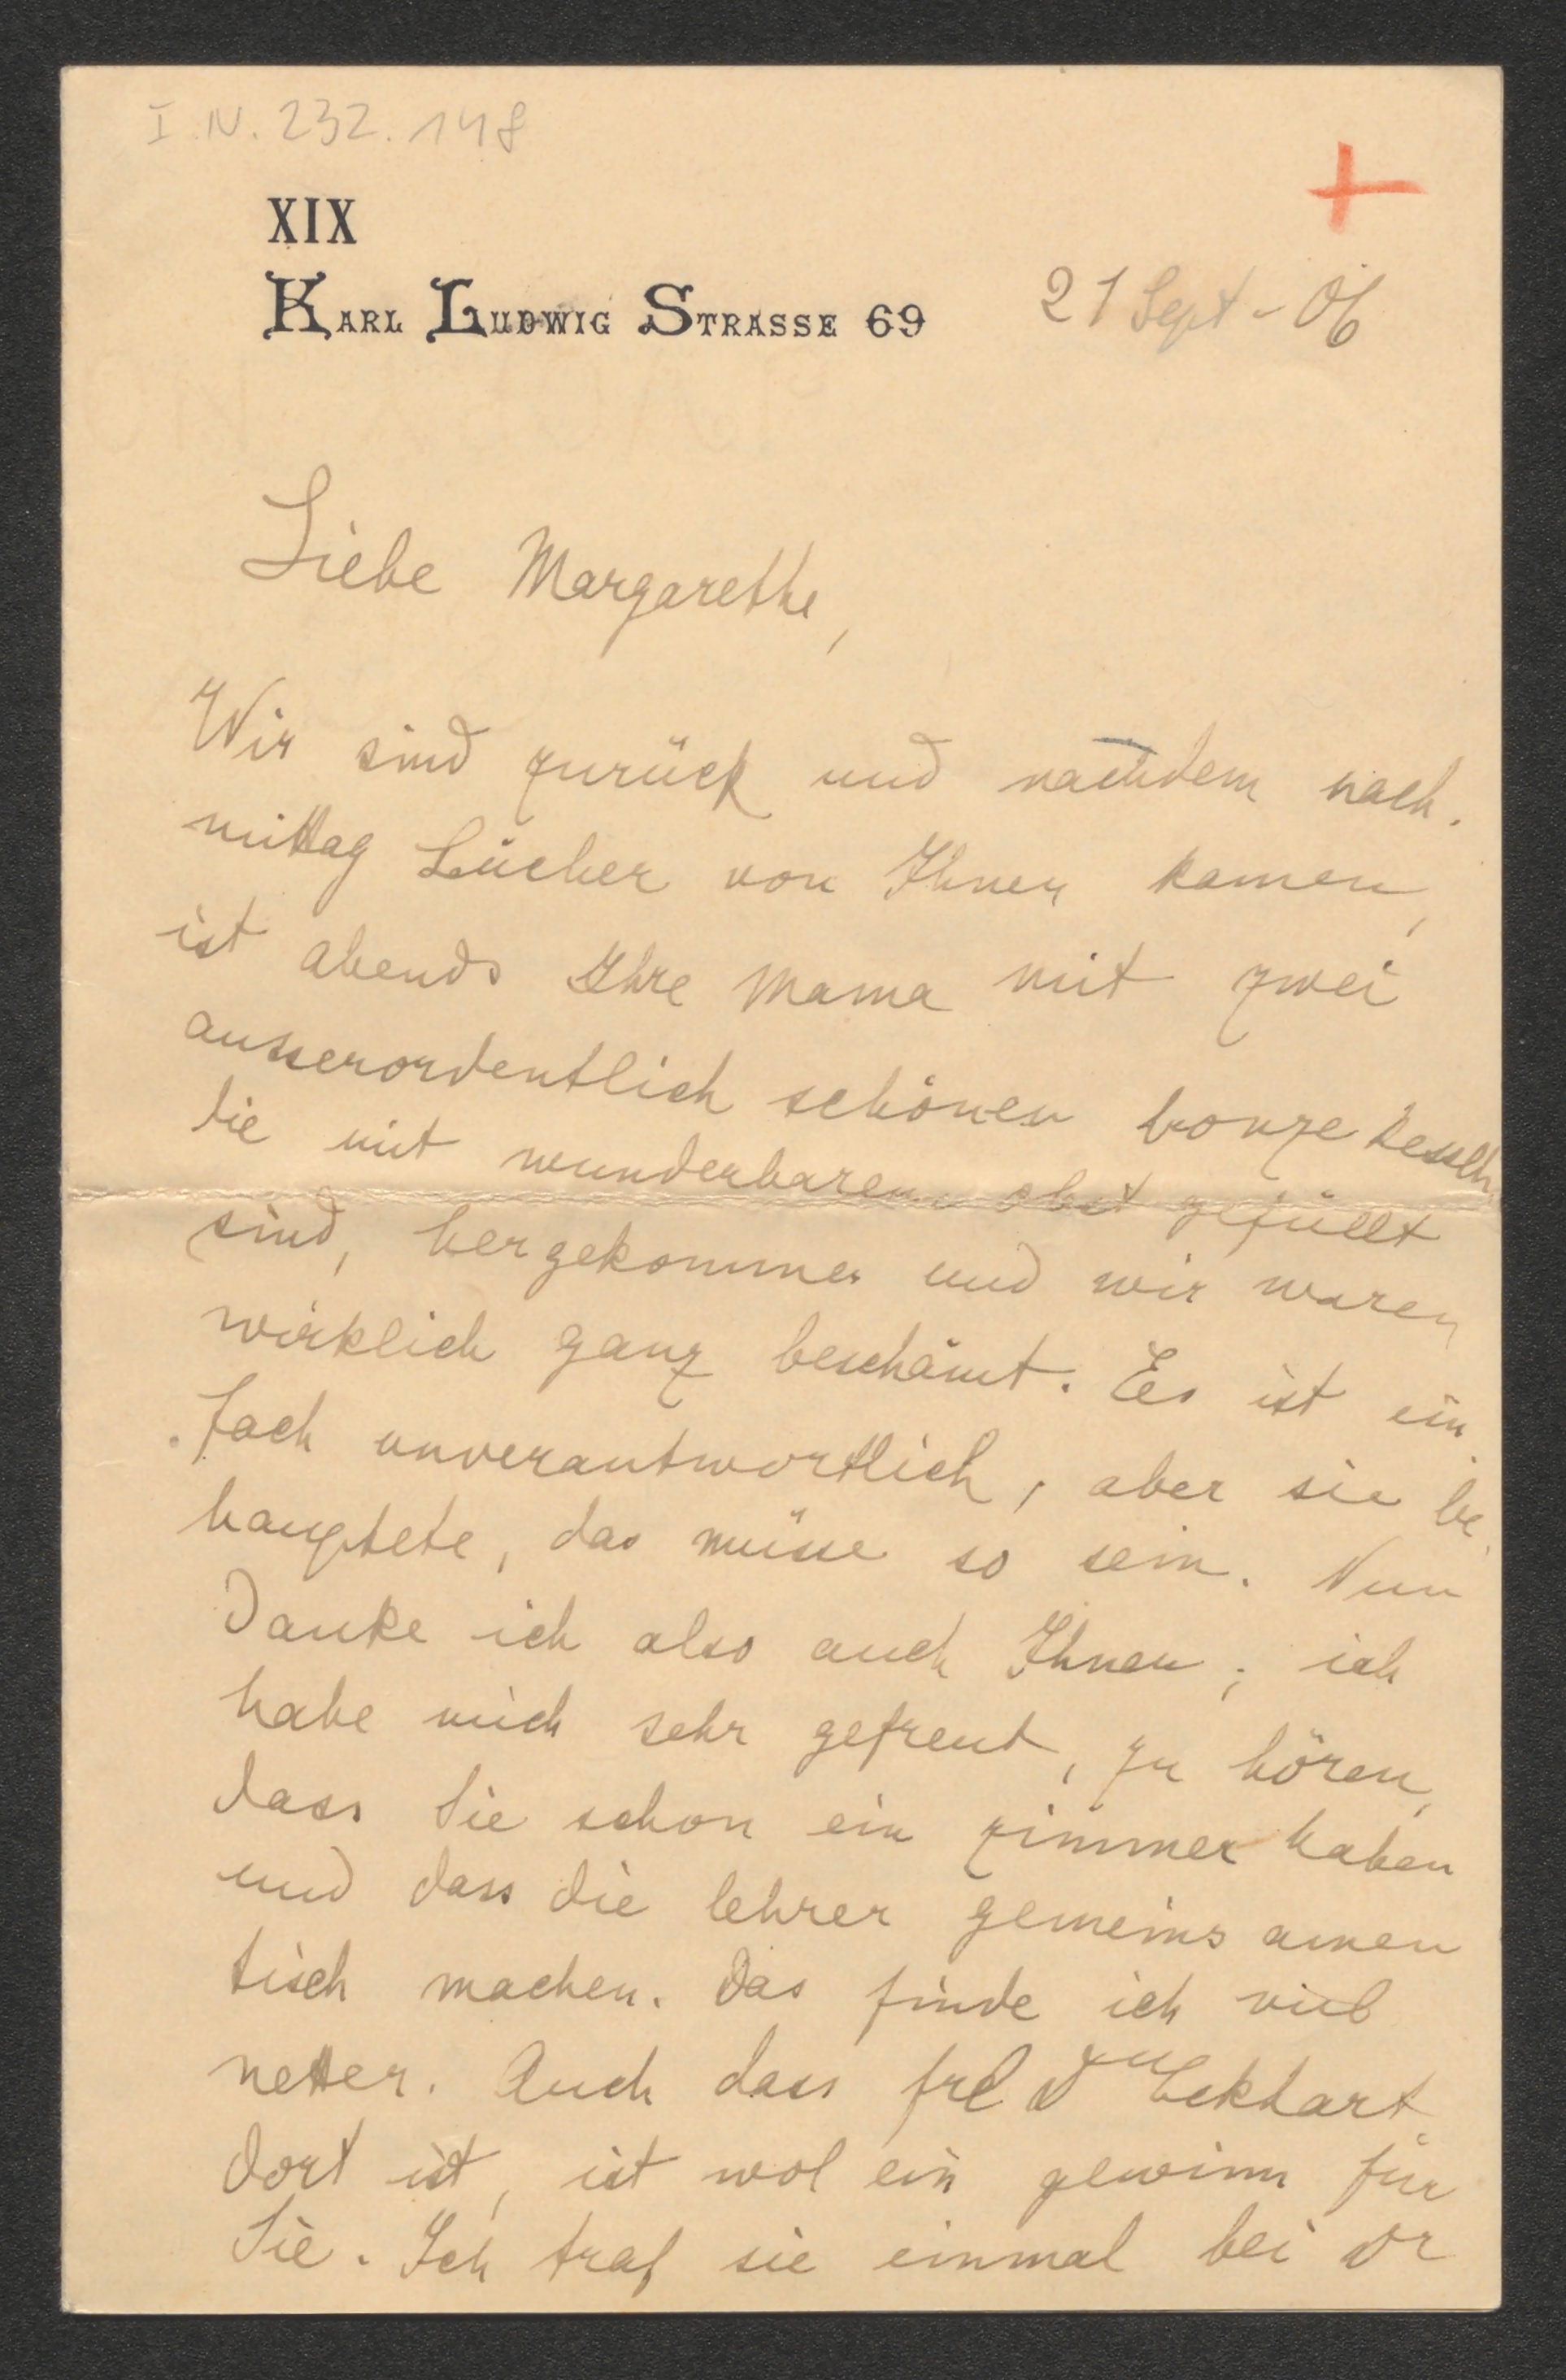 I.N. 232.148
XIX
KARL LUDWIG STRASSE 69
21 Sept - 06
Liebe Margarethe,
Wir sind zurück und nachdem nach-
mittag bücher von Ihnen kamen,
ist abends Ihre Mama mit zwei
ausserordentlich schönen bronze kesseln,
die mit wunderbarem obst gefüllt
sind, hergekommen und wir waren
wirklich ganz beschämt. Es ist ein-
fach unverantwortlich, aber sie be-
hauptete, das müsse so sein. Nun
danke ich also auch Ihnen; ich
habe mich sehr gefreut, zu hören,
dass Sie schon ein zimmer haben
und dass die lehrer gemeinsamen
tisch machen. Das finde ich viel
netter. Auch dass frl Eckhart
dort ist, ist wol ein gewinn für
Sie. Ich traf sie einmal bei Dr